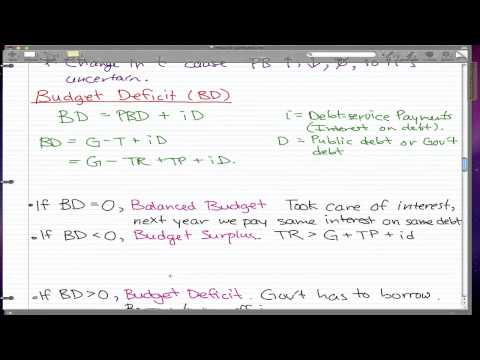 Change in t cause PB ↑, ↓, so it's
uncertain.
Budget Deficit (BD)
BD = PBD + iD
i = Debt-service Payments
(Interest on debt).
BD = G-T + iD
D = Public debt or Gov't
debt
= G- TR +TP + iD.
• If BD=0, Balanced Budget Took care of interest,
next year we pay same interest on same debt
• If BD < 0, Budget Surplus. TR > G + TP + id
• If BD>0, Budget Deficit. Gov't has to borrow.